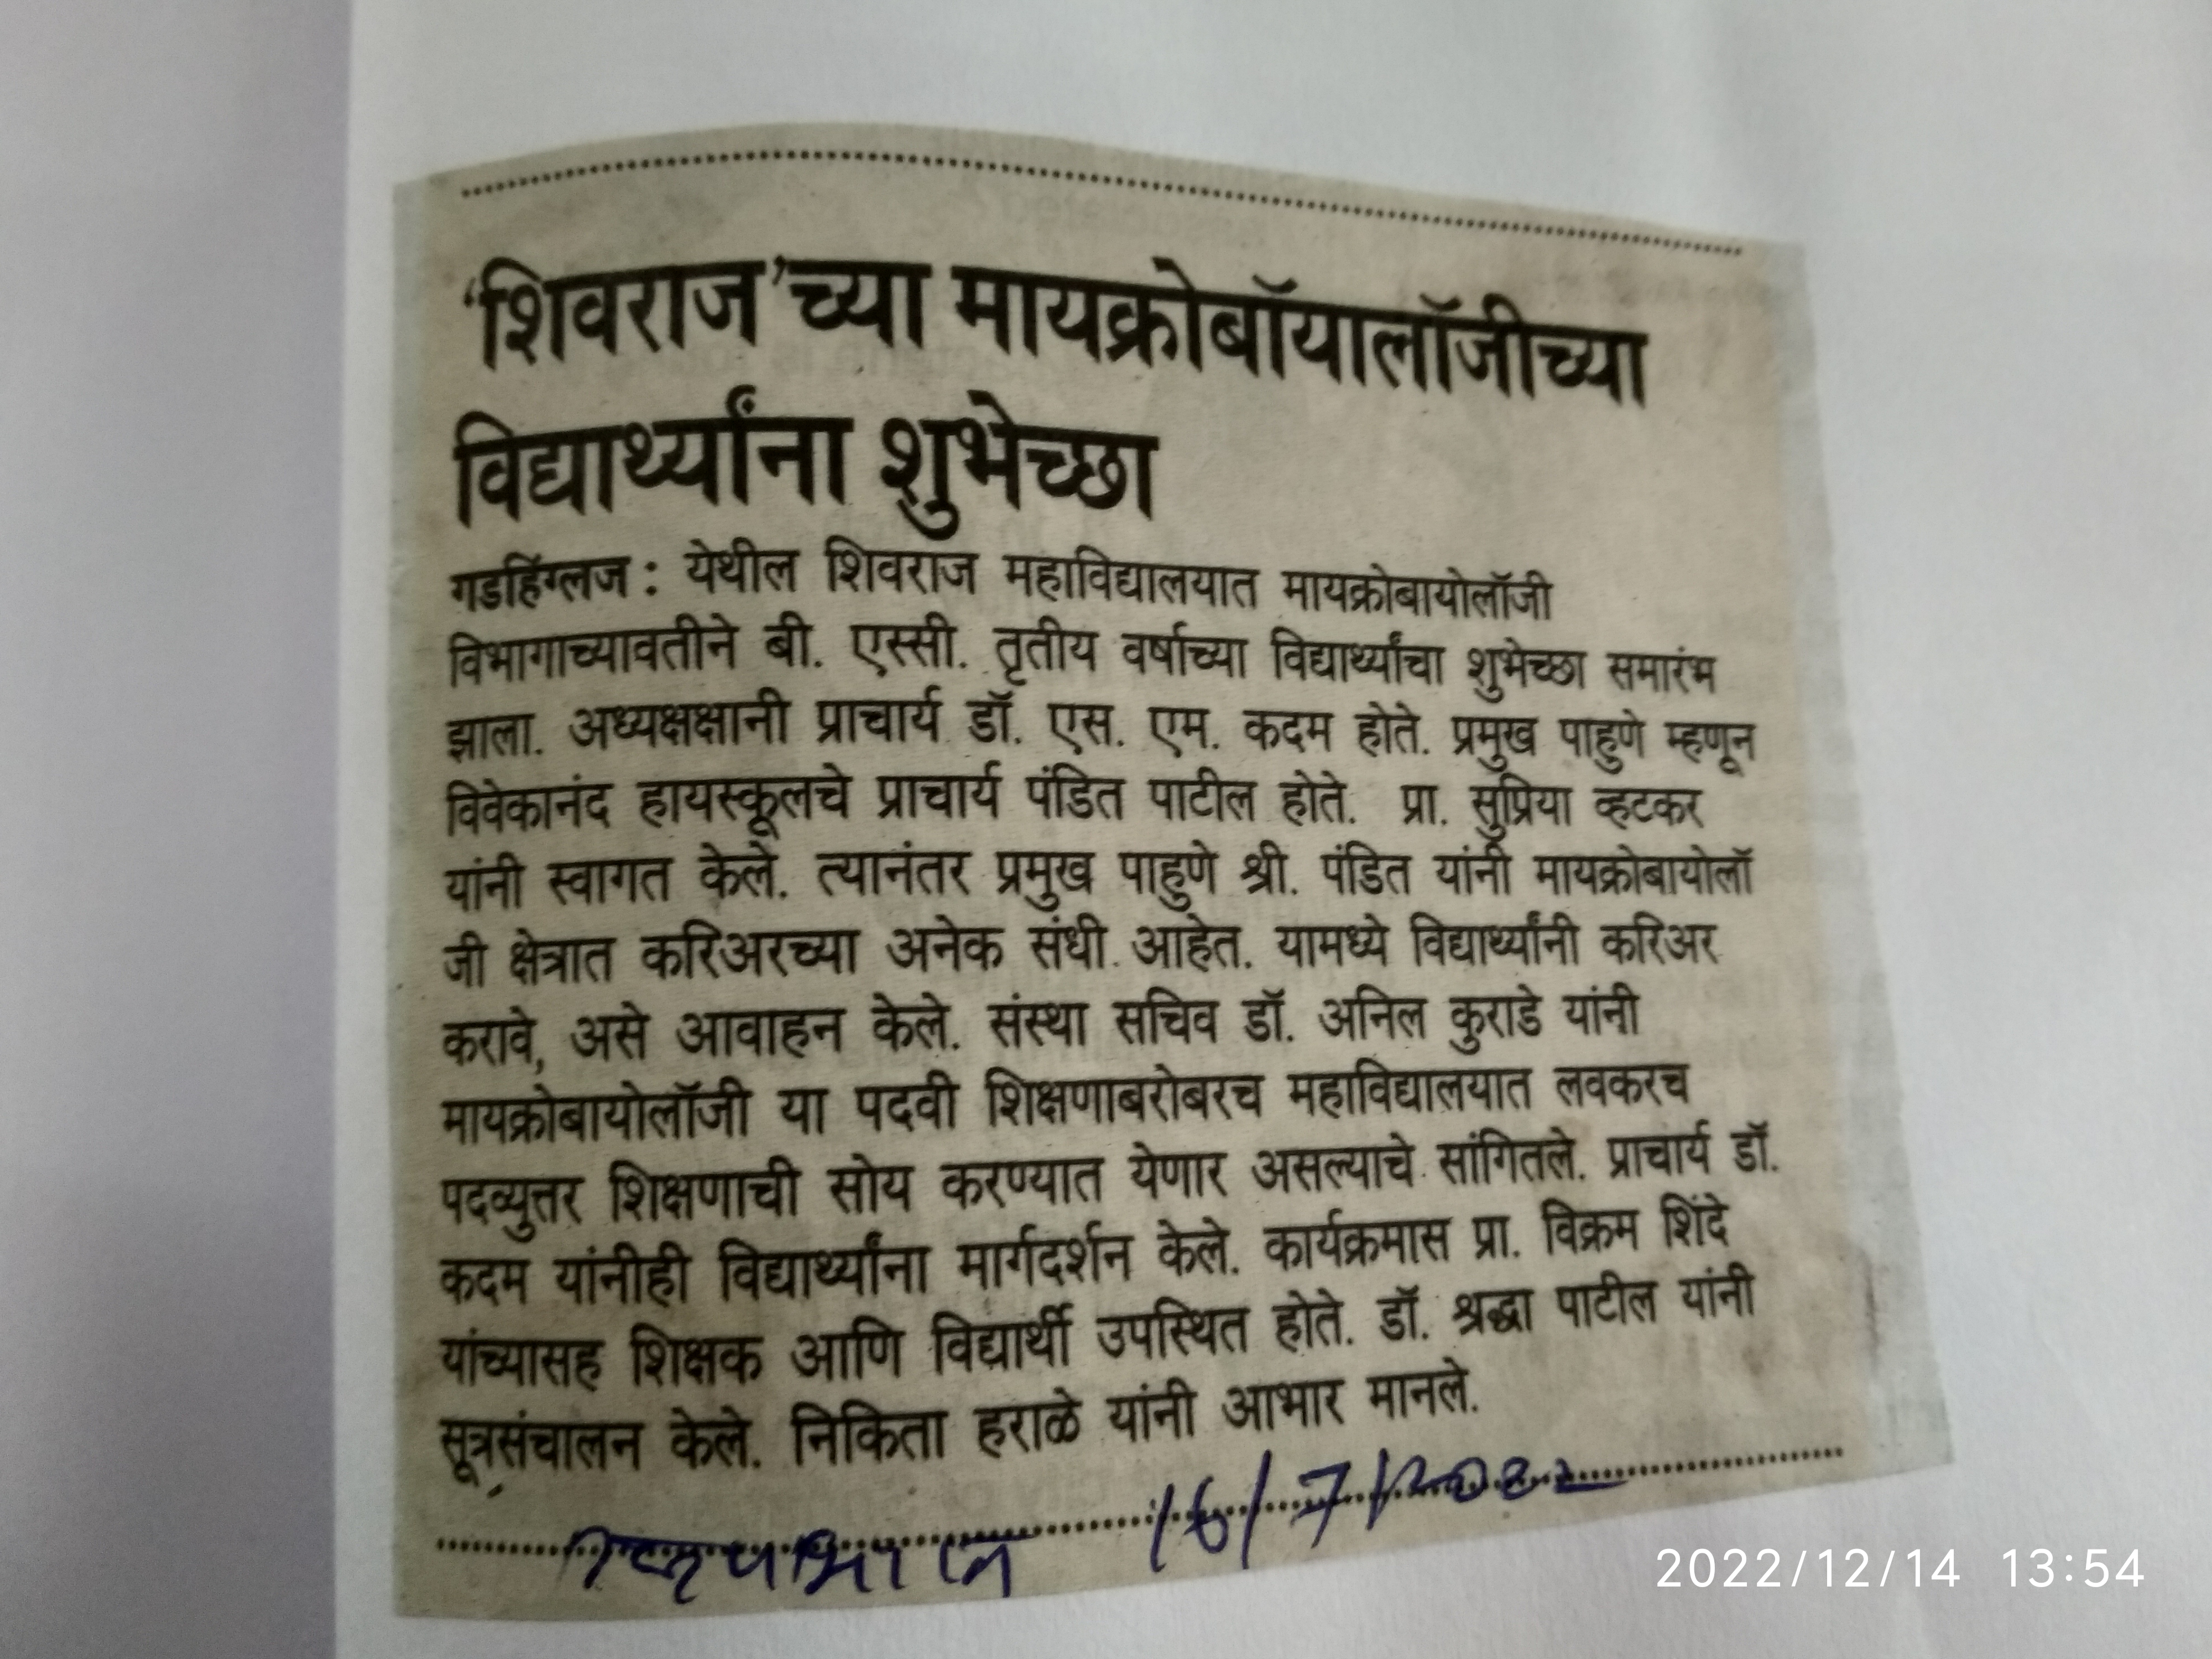 ‘शिवराज’च्या मायक्रोबॉयालॉजीच्या
विद्यार्थ्यांना शुभेच्छा
गडहिंग्लज : येथील शिवराज महाविद्यालयात मायक्रोबायोलॉजी
विभागाच्यावतीने बी. एस्सी. तृतीय वर्षाच्या विद्यार्थ्यांचा शुभेच्छा समारंभ
झाला. अध्यक्षक्षानी प्राचार्य डॉ. एस. एम. कदम होते. प्रमुख पाहुणे म्हणून
विवेकानंद हायस्कूलचे प्राचार्य पंडित पाटील होते. प्रा. सुप्रिया व्हटकर
यांनी स्वागत केले. त्यानंतर प्रमुख पाहुणे श्री. पंडित यांनी मायक्रोबायोलॉ
जी क्षेत्रात करिअरच्या अनेक संधी आहेत. यामध्ये विद्यार्थ्यांनी करिअर
करावे, असे आवाहन केले. संस्था सचिव डॉ. अनिल कुराडे यांनी
मायक्रोबायोलॉजी या पदवी शिक्षणाबरोबरच महाविद्यालयात लवकरच
पदव्युत्तर शिक्षणाची सोय करण्यात येणार असल्याचे सांगितले. प्राचार्य डॉ.
कदम यांनीही विद्यार्थ्यांना मार्गदर्शन केले. कार्यक्रमास प्रा. विक्रम शिंदे
यांच्यासह शिक्षक आणि विद्यार्थी उपस्थित होते. डॉ. श्रद्धा पाटील यांनी
सूत्रसंचालन केले. निकिता हराळे यांनी आभार मानले.
16/7/2022
2022/12/14 13:54